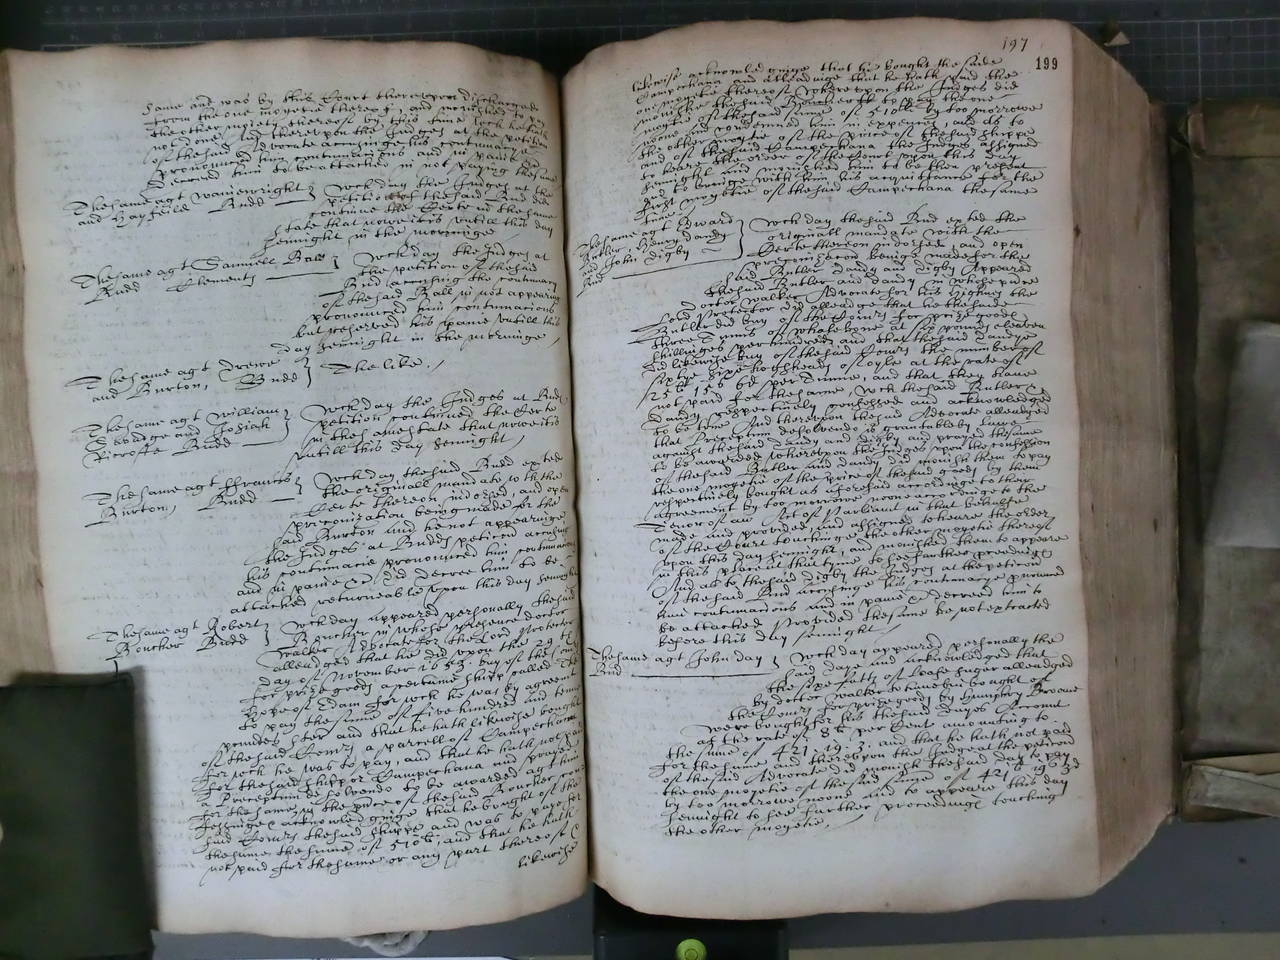 same and was by this Court thereupon discharged
from the one moyetie thereof, and monished to pay
the other moyetie thereof by this time wch he hath
not done, And thereupon the Judges at the petition
of the said Advocate accusinge his contumacy
pronounced him contumacious and in paine &c
decreed him to be attached in not paying the same
The same agt Wainewright
and Hayfeild Budd
wch day the Judges at the
petition of the said Bud did
continue the Certe in the same
state that nowe it is untill this day
sennight in the morninge
The same agt Samuell Ball
Budd Clements
wch day the Judges at
the petition of the said
Bud accusing the contumacy
of the said Ball in not appearing
pronounced him contumacious
but reserved his paine untill this
day sennight in the morninge
The same agt Drewe
and Burton, Budd
The like.
The same agt William
and Josiah
Ricrofte Budd
wch day the Judges at Buds
petition continued the Certe
in the same state that nowe it is
untill this day sennight
The same agt Francis
Burton, Budd
wch day the said Budd exted
the originall mandate wth the
Certe thereon indorsed, and open
preconization being made for the
said Burton and he not appearinge
the Judges at Budds peticon accusing
his contumacie pronounced him contumacious
and in paine &c did decree him to be
attached returneable upon this day sennight
The same agt Robert
Boucher Budd
wch day appeared personally the said
Boucher in whose presence doctor
Walker Advocate for the Lord Protector
alleadged that he did upon the 29th
day of November 1653. buy of the Comrs
for prize goods a certaine shipp called the
Hope of Edam for wch he was by agreemt
to pay the summe of five hundred and tenne
poundes &c and that he hath likewise bought
of the said Comrs a parcell of Campechana
for wch he was to pay, and that he hath not paid
for the said shipp or Campechana and prayed
a Preceptum de solvendo to be awarded agt him
for the same, in the presence of the said Boucher
acknowledginge that he bought of the
said Comrs the said shippe and was to paye for
the same the summe of 510li, and that he hath
not paid for the same or any part thereof &
likewise
197
199
likewise acknowledginge that he bought the said
Campechana and alleadginge that he hath paid the
one moyetie thereof, Whereupon the Judges did
monishe the said Boucher to pay the one
moyetie of the said summe of 510li by too morrowe
noone and condemned him in expences, and as to
the other moyetie of the price of the said shippe
and of the said Campechana the Judges assigned
to heare the order of the Court upon this day
sennight and monished him to be then present
and to bringe with him his acquittance for the
first moyetie of the said Campechana the same
time
The same agt Edward
Butler, Henry Dandy
and John Digby
Bud
wch day the said Bud exted the
originall mandate with the
Certe thereon indorsed, and open
preconizacon beinge made for the
said Butler Dandy and Digby Appeared
the said Butler and Dandy in whose presence
doctor Walker Advocate for his highnes the
Lord Protector did alleadge that he the said
Butler did buy of the Comrs for prize goods
three tunns of whalebone at six pounds eleaven
shillinges per hundred, and that the said Dandye
did likewise buy of the said Comrs the number of
sixtie sixe hogsheads of oyle at the rate of
25li 15s 6d per tunne, and that they have
not paid for the same, wch the said Butler &
Dandy respectively confessed and acknowledged
to be true And thereupon the said Advocate alleadged
that Preceptum de solvendo is grantable by lawe
against the said Dandy and Digby and prayed the same
to be awarded whereupon the Judges upon the confession
of the said Butler and Dandy did monish them to pay
the one moyetie of the price of the said goods by them
respectively bought as aforesaid accordinge to their
agreement by too morrowe noone accordinge to the
Tenor of an Act of Parliamt in that behalfe
made and provided, and assigned to heare the order
of the Court touchinge the other moyetie thereof
upon this day sennight, and monished them to appeare
in this place at that tyme to see further proceedings
And as to the said Digby the Judges at the peticon
of the said Bud accusing his contumacye pronounced
him contumacious and in paine &c decreed him to
be attached Provided the same be not extracted
before this day sennight
The same agt John Day
Bud
wch day appeared personally the
said Daye and acknowledged that
the alleadged
by doctor Walker to have bin bought of
the Comrs for prize goods by Humphry Broome
were bought for his the said Dayes Account
at the rate of 8li per Cent amounting to
the summe of 421. 19. 3. and that he hath not paid
for the same, and thereupon the Judges at the peticon
of the said Advocate did monish the said Day to pay
the one moyetie of the said summe of 421li 19s 3d
by too morrowe noone and to appeare this day
sennight to see further proceedings touching
the other moyetie.